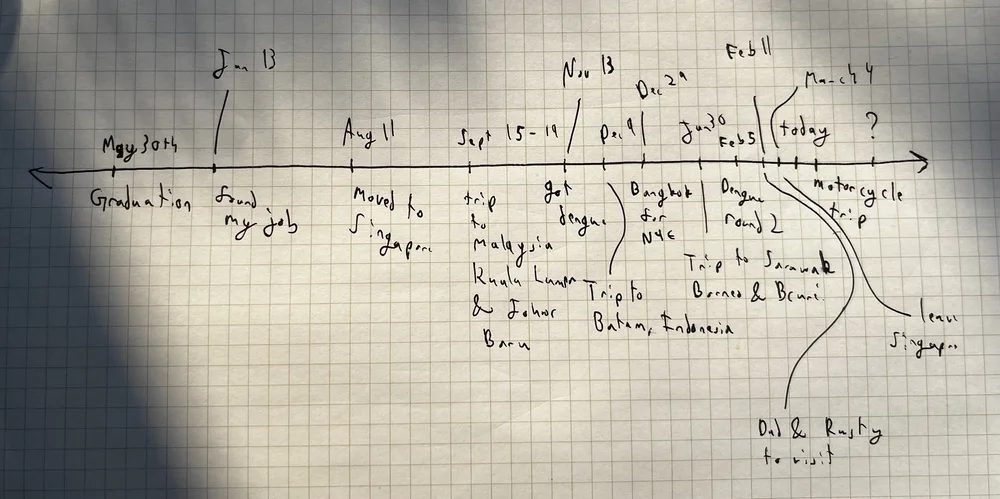 Jun 13
Nov 13
Dec 29
Feb 11
March 4
May 30th
Aug 11
Sept 15-19
Dec 9
Jan 30
Feb 5
today
?
Graduation
found
my job
Moved to
Singapore
trip
to
Malaysia
Kuala Lumpur
& Johor
Baru
got
dengue
Trip to
Batam, Indonesia
Bangkok
for
NYE
Dengue
round 2
Trip to Sarawak
Borneo & Brunei
motorcycle
trip
leave
Singapore
Dad & Rusty
to visit